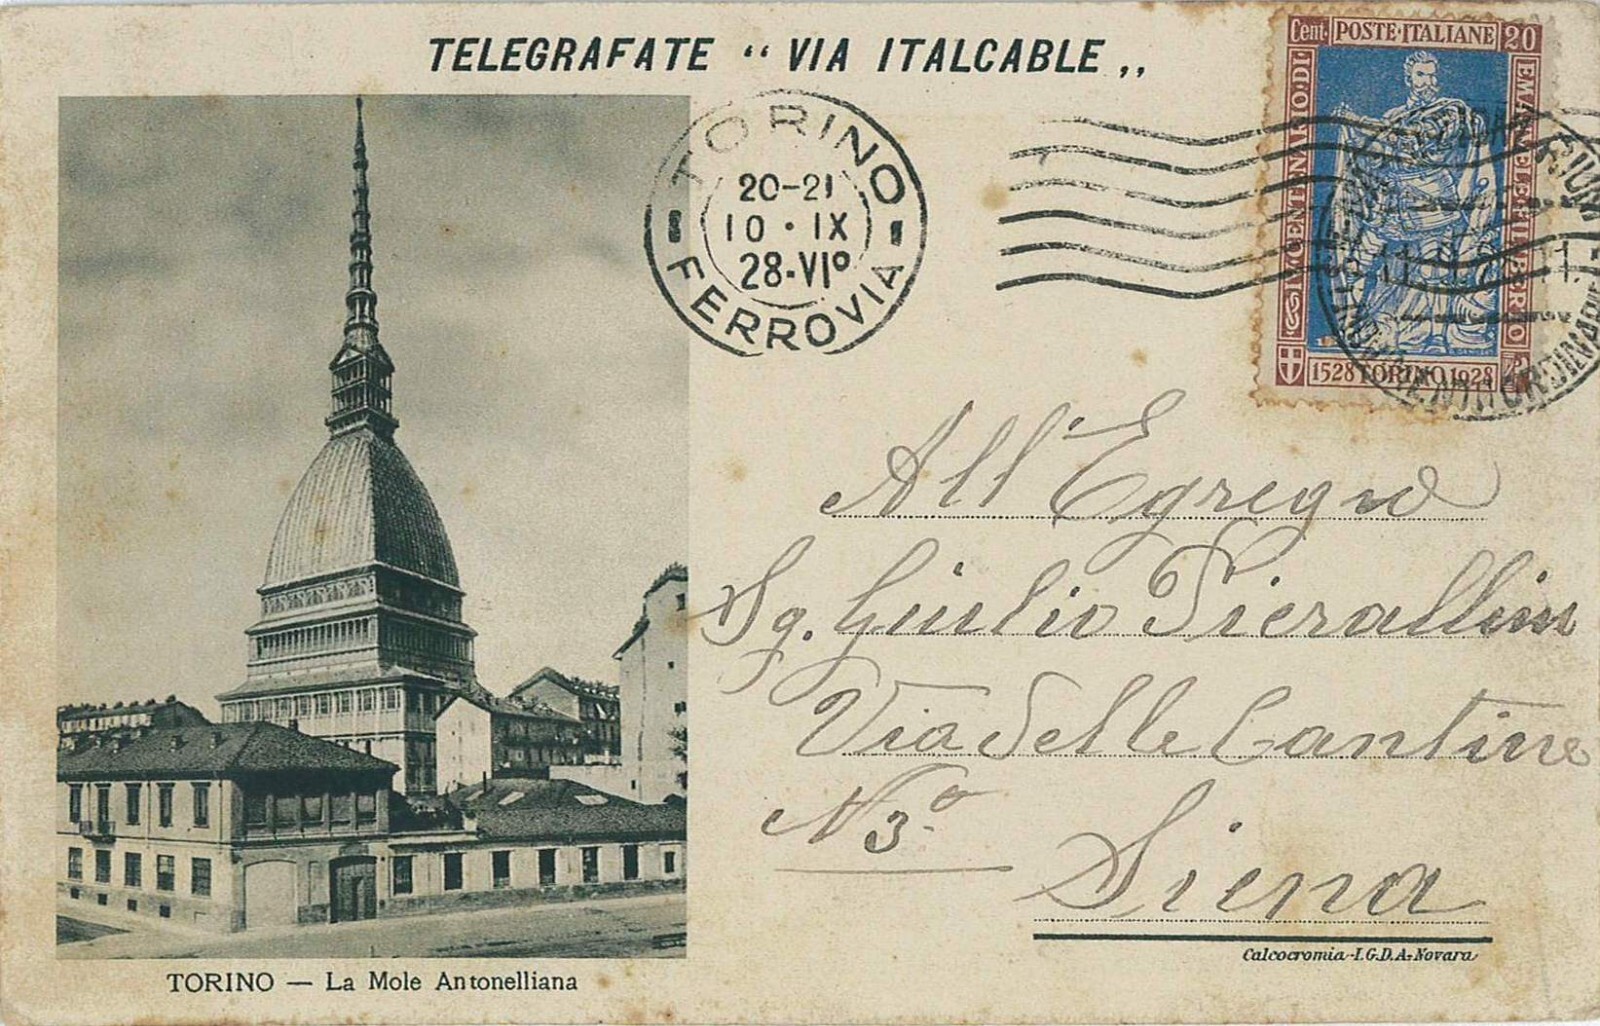 TELEGRAFATE “ VIA ITALCABLE „
Cent. POSTE·ITALIANE 20
IV·CENTENARIO·DI
EMANUELE·FILIBERTO
1528 TORINO 1928
TORINO
20-21
10·IX
28·VIº
FERROVIA
All'Egregio
Sg. Giulio Pierallini
Via delle Cantine
N 3º
Siena
Calcocromia-I.G.D.A-Novara
TORINO — La Mole Antonelliana